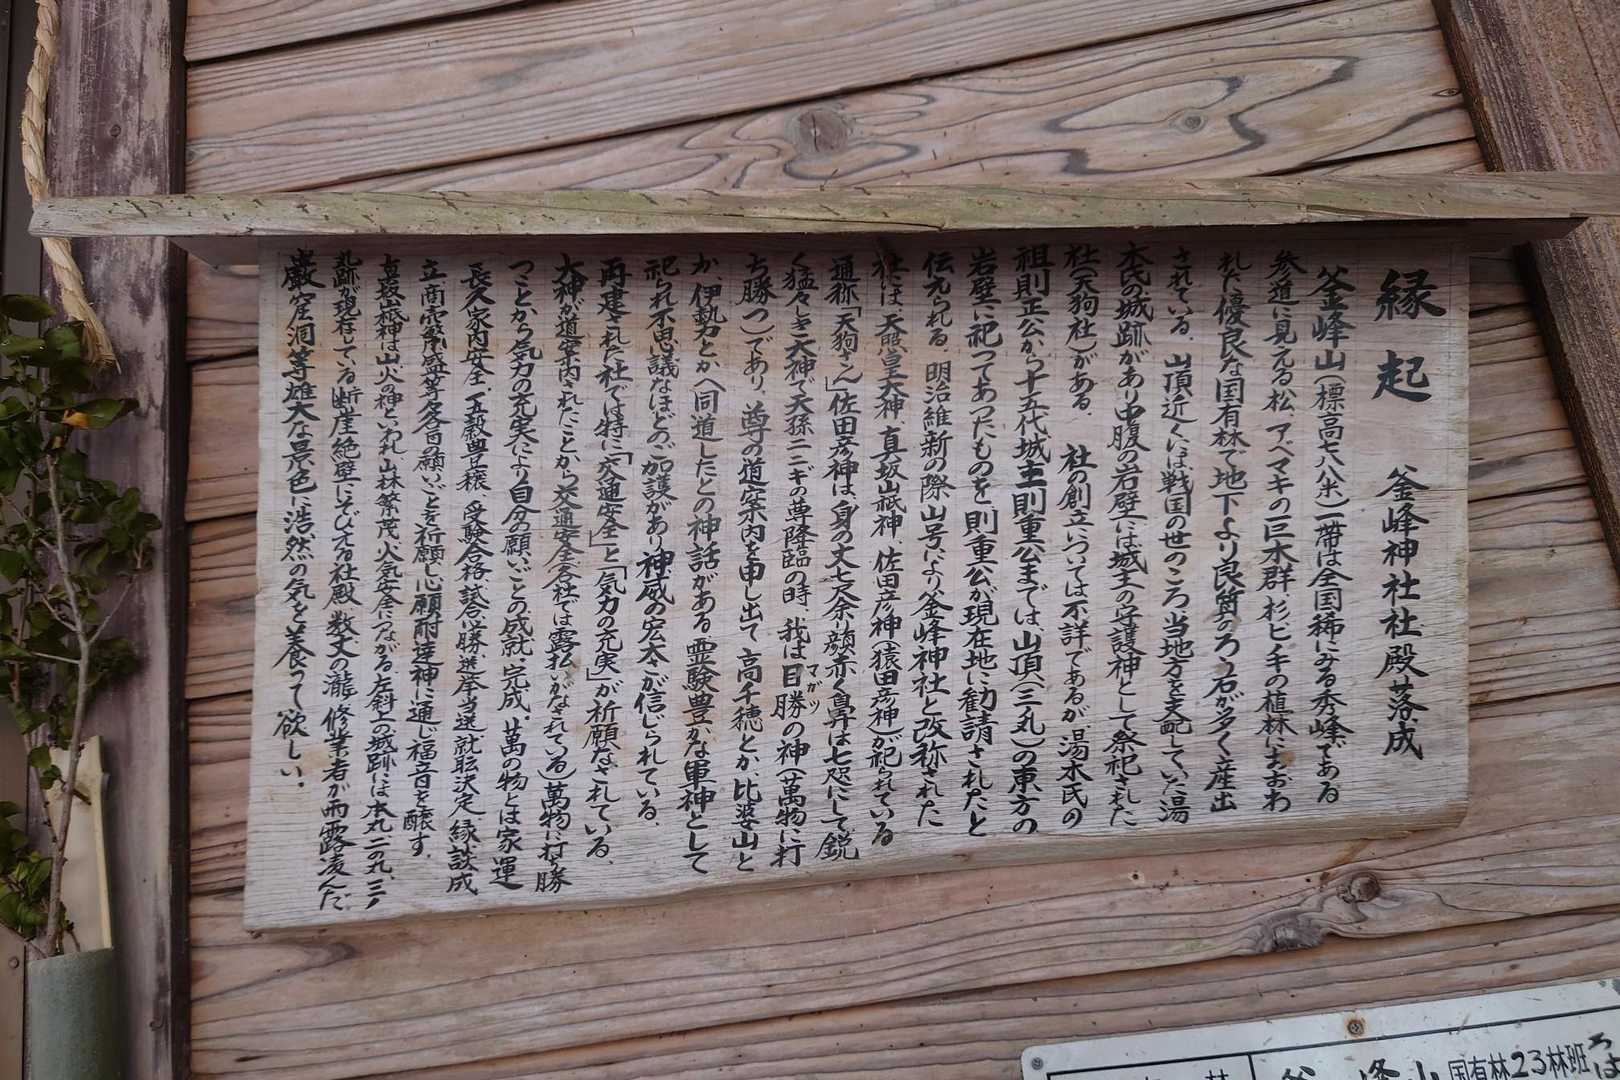 縁起　釜峰神社社殿落成
釜峰山(標高七八八米)一帯は全国稀にみる秀峰である
参道に見える松、アベマキの巨木群、杉ヒノキの植林におおわ
れた優良な国有林で地下より良質のろう石が多く産出
されている。山頂近くには戦国の世のころ当地方を支配していた湯
木氏の城跡があり中腹の岩壁には城主の守護神として祭祀された
社(天狗社)がある。社の創立については不詳であるが湯木氏の
祖則正公から十五代城主則重公までは、山頂(三丸)の東方の
岩壁に祀ってあったものを則重公が現在地に勧請されたと
伝えられる。明治維新の際山号により釜峰神社と改称された
社には、天照皇大神、真坂山祇神、佐田彦神(猿田彦神)が祀られている
通称「天狗さん」佐田彦神は、身の丈七尺余顔赤く鼻は七咫にして鋭
く猛々しき大神で天孫ニニギの尊降臨の時、我は目勝の神(萬物に打
マガツ
ち勝つ)であり、尊の道案内を申し出て高千穂とか、比婆山と
か、伊勢方とかへ同道したとの神話がある霊験豊かな軍神として
祀られ不思議なほどのご加護があり神威の宏大さが信じられている。
再建された社では特に「交通安全」と「気力の充実」が祈願なされている。
大神が道案内されたことから交通安全(各社では露払いがなされている)萬物に打ち勝
つことから気力の充実により自分の願いごとの成就、完成。萬の物とは家運
長久家内安全、五穀豊穣、受験合格、試合必勝、選挙当選、就職決定、縁談成
立、商売繁盛等各自の願いごとを祈願し心願耐達神に通じ福音を醸す。
真坂山祇神は山火の神といわれ山林繁茂、火気安全につながる左斜上の城跡には本丸二の丸、三ノ
丸跡が現存している断崖絶壁にそびえる社殿、数丈の瀧、修業者が雨露凌んだ
巌窟洞等雄大な景色に浩然の気を養って欲しい。
国有林23林班